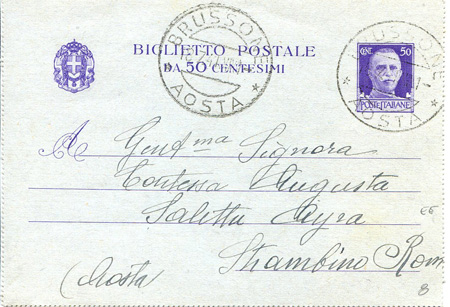 BRUSSON
AOSTA
BIGLIETTO POSTALE
DA 50 CENTESIMI
BRUSSON
AOSTA
CME 50
POSTE ITALIANE
A Gent.ma Signora
Contessa Augusta
Saletta Ayra
Strambino Rom
(Aosta